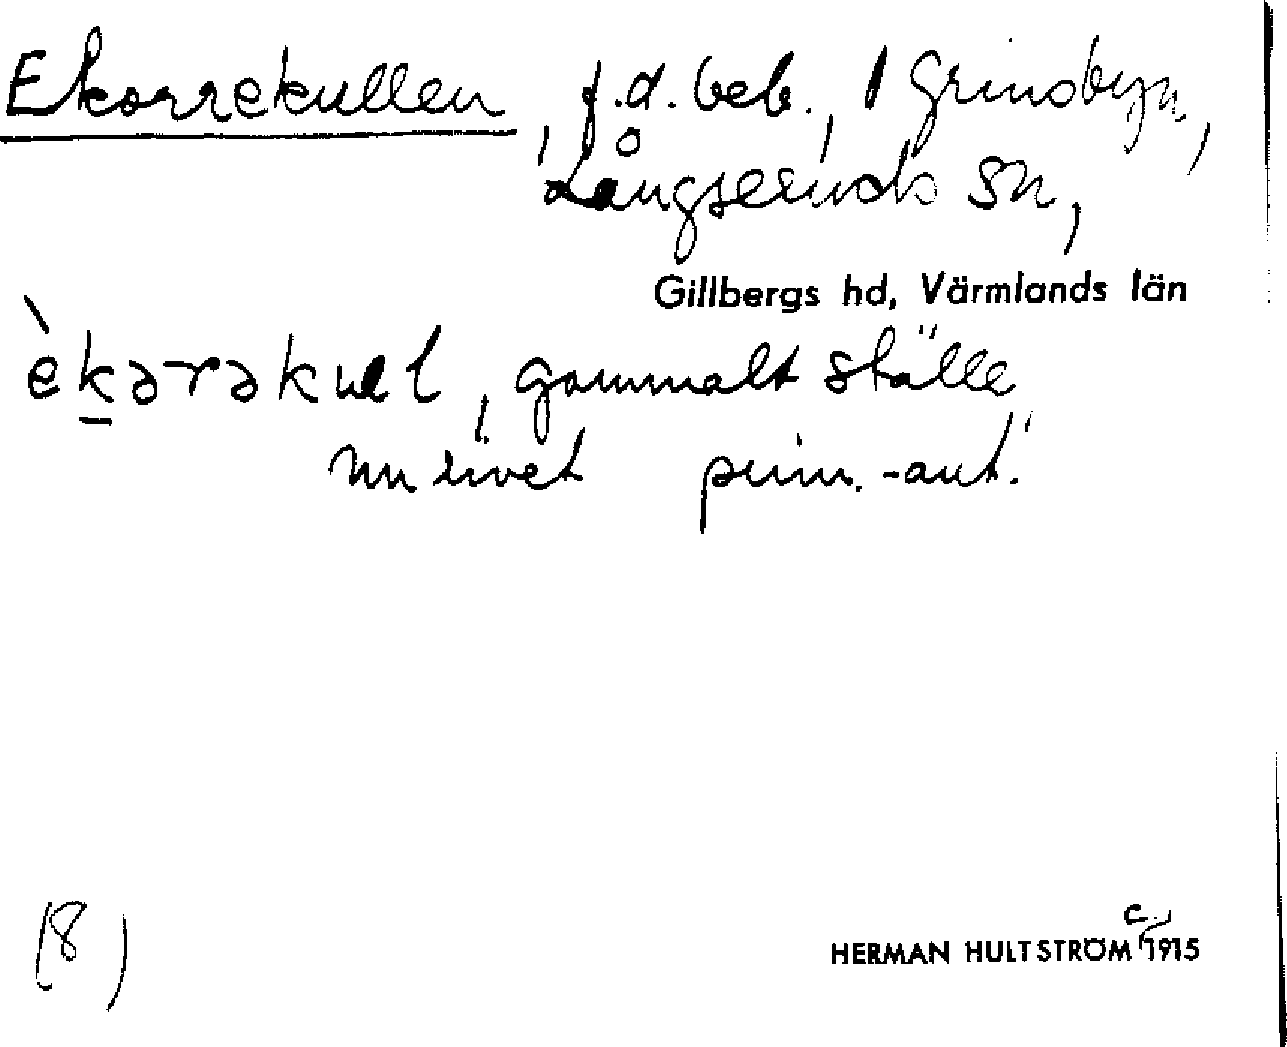 Ekorrekullen, f.d. beb., i Grinsbyn,
Långseruds sn,
Gillbergs hd, Värmlands län
èkərəkul, gammalt ställe
nu rivet prim.-aut.
(8)
HERMAN HULTSTRÖM c. 1915